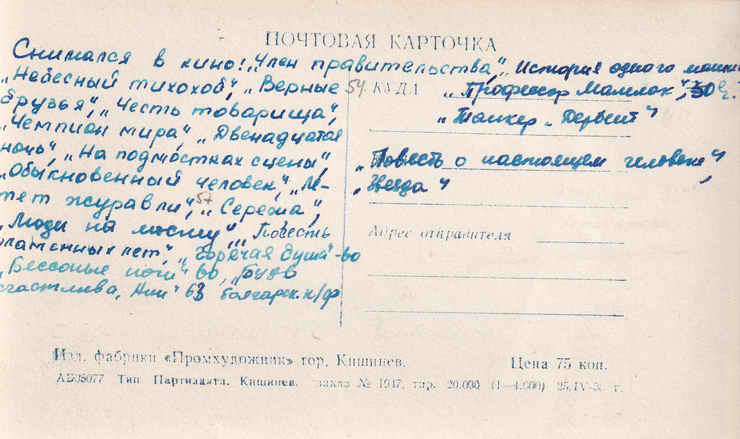 ПОЧТОВАЯ КАРТОЧКА
Снимался в кино: „Член правительства",
„Небесный тихоход", „Верные
друзья", 54 „Честь товарища",
„Чемпион мира", „Двенадцатая
ночь", „На подмостках сцены",
„Обыкновенный человек", „Ле-
тят журавли", 57 „Сережа",
„Люди на мосту", „Повесть
пламенных лет", „Горячая душа"-60
„Бессонные ночи" 60, „Будь
счастлива, Ани" 63 болгарск. к/ф
„История одного
КУДА „Профессор Мамлок",
„Танкер „Дербент"
„Повесть о настоящем человеке",
„Звезда"
Адрес отправителя
Изд. фабрики «Промхудожник» гор. Кишинев. Цена 75 коп.
Тип. Партиздата, Кишинев. заказ № 1947, тир. 20.000 (1—4.000)